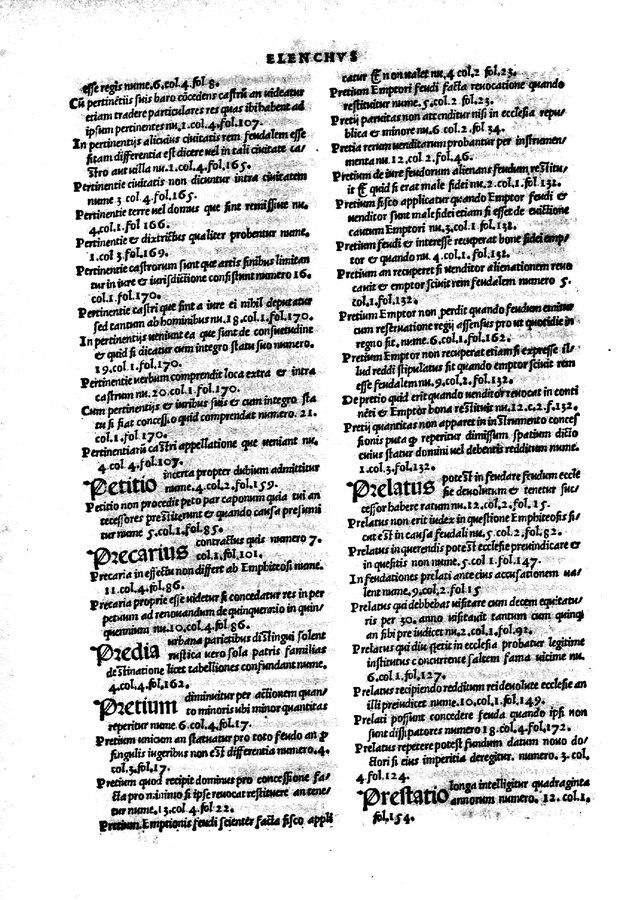 ELENCHVS
esse regis nume.6.col.4.fol 8.
Cū pertinētiis suis baro cōcedens castrū an uideatur
etiam tradere particulares res quas ibi habent ad
ipsum pertinentes nu.1.col.4.fol.107.
In pertinentijs alicuius ciuitatis rem feudalem esse
sitam differentia est dicere uel in tali ciuitate ca/
stro aut uilla nu.1.col.4.fol.165.
Pertinentie ciuitatis non dicuntur intra ciuitatem
nume 3 col 4.fol.165.
Pertinentie terre uel domus que sint remissiue nu.
4.col.1.fol 166.
Pertinentie & dixtrictus qualiter probentur nume.
1.col 3.fol.169.
Pertinentie castrorum sunt que artis finibus limitan
tur in iure & iurisdictione consistunt numero 16.
col.1.fol.170.
Pertinentie castri que sint a iure ei nihil deputatur
sed tantum ab hominibus nu.18.col.1.fol.170.
In pertinentijs ueniunt ea que sunt de consuetudine
& quid si dicatur cum integro statu suo numero.
19.col.1.fol.170.
Pertinentie uerbum comprendit loca extra & intra
castrum nu.20.col.1.fol.170.
Cum pertinentijs & iuribus suis & cum integro sta
tu si fiat concessio quid comprendat numero. 21.
col.1.fol.170.
Pertinentiarū castri appellatione que ueniant nu.
4 col 4.fol.107.
Petitio incerta propter dubium admittitur
nume.4.col.2.fol.159.
Petitio non procedit peto par caponum quia tui an
tecessores prestiterunt & quando causa presumi
tur nume 5.col.1.fol.85.
Precarius contractus quis numero 7.
col.1.fol.101.
Precaria in effectu non differt ab Emphiteosi nume.
11.col 4.fol.86.
Precaria proprie esse uidetur si concedatur res in per
petuum ad renouandum de quinquenario in quin/
quennium nu.10.col.4.fol 86.
Predia urbana parietibus distingui solent
rustica uero sola patris familias
destinatione licet tabelliones confundant nume.
4.col.4.fol.162.
Pretium diminuitur per actionem quan/
to minoris ubi minor quantitas
reperitur nume.6.col.4.fol.17.
Pretium unicum an statuatur pro toto feudo an ꝓ
singulis iugeribus non est differentia numero.4.
col.3.fol.17.
Pretium quod recipit dominus pro concessione fa/
cta pro nimio si ipse reuocat restituere an tene/
tur nume.13.col 4.fol 22.
Pretium Emptionis feudi scienter facta fisco appli
catur & non ualet nu.4 col.2 fol.23.
Pretium Emptori feudi facta reuocatione quando
restituitur nume.5.col.2 fol.23.
Pretij paruitas non attenditur nisi in ecclesia repu/
blica & minore nu.6 col.2 fol 34.
Pretia rerum uenditarum probantur per instrumen/
menta nu.12 col.2 fol.46.
Pretium de iure feudorum alienans feudum restitu/
it & quid si erat male fidei nu.2.col.1.fol.132.
Pretium fisco applicatur quando Emptor feudi &
uenditor sunt male fidei etiam si esset de euictione
cautum Emptori nu.3.col.1.fol.132.
Pretium feudi & interesse recuperat bone fidei emp/
tor & quando nu.4.col.1.fol.132.
Pretium an recuperet si uenditor alienationem reuo
cauit & emptor sciuit rem feudalem numero 5.
col.1.fol.132.
Pretium Emptor non perdit quando feudum emitur
cum reseruatione regij assensus pro ut quotidie in
regno fit.nume.6.col.1.fol.162.
Pretium Emptor non recuperat etiam si expresse il/
lud reddi stipulatus sit quando emptor sciuit rem
esse feudalem nu.9.col.2.fol.132.
De pretio quid erit quando uenditor reuocat in conti
nēti & Emptor bona restituit nu.12.c.2.f.132.
Pretij quantitas non apparet in instrumento conces
sionis puta ꝗ reperitur dimissum spatium dicto
cuius statur domini uel debentis redditum nume.
1.col.3.fol.132.
Prelatus potest in feudare feudum eccle
sie deuolutum & tenetur suc/
cessor habere ratum nu.12.col.2.fol.15.
Prelatus non erit iudex in questione Emphiteosis si/
cut est in causa feudali nu.5.col 2.fol.82.
Prelatus in querendis potest ecclesie preuindicare &
in quesitis non nume.5.col 1.fol.147.
In feudationes prelati ante eius accusationem ua/
lent nume.9.col.2.fol 15
Prelatus qui debebat uisitare cum decem equitatu/
ris per 30. anno uisitauit tantum cum quinq
an sibi pre iudicet nu.2.col.1.fol.92.
Prelatus qui diu stetit in ecclesia probatur legitime
institutus concurrente saltem fama uicine nu.
6.col.1.fol.127.
Prelatus recipiendo redditum rei deuolute ecclesie an
illi preiudicet nume.10.col.1.fol.149.
Prelati possunt concedere feuda quando ipsi non
sunt dissipatores numero 18.col.4.fol.172.
Prelatus repetere potest fundum datum nouo do/
ctori si eius imperitia deregitur. numero.3.col.
4 fol.124.
Prestatio longa intelligitur quadraginta
annorum numero. 12.col.1.
fol.154.